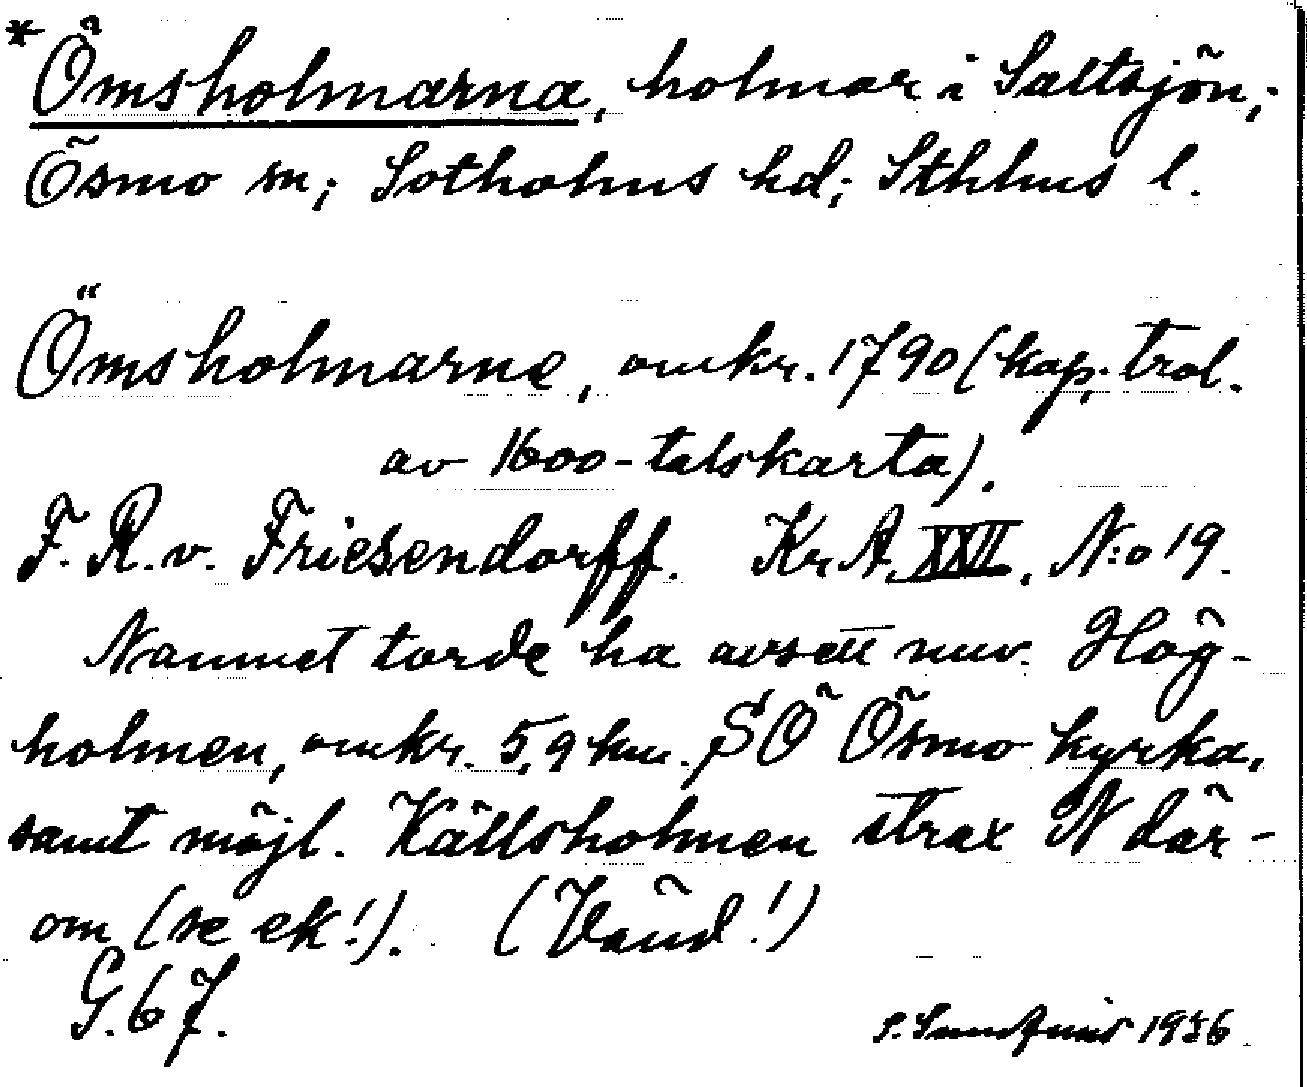 *Ömsholmarna, holmar i Saltsjön;
Ösmo sn; Sotholms hd; Sthlms l.
Ömsholmarne, omkr. 1790 (kap. trol.
av 1600-talskarta).
F. R. v. Friesendorff. KrA. XXII. N:o 19.
Namnet torde ha avsett nuv. Hög-
holmen, omkr. 5,9 km. SÖ Ösmo kyrka,
samt möjl. Källsholmen strax N där-
om (se ek!). (Vänd!)
G. 67.
S. Sundqvist 1936